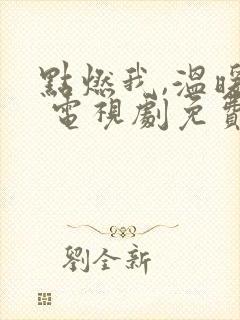 點燃我,溫暖
電視劇免費
劉全新